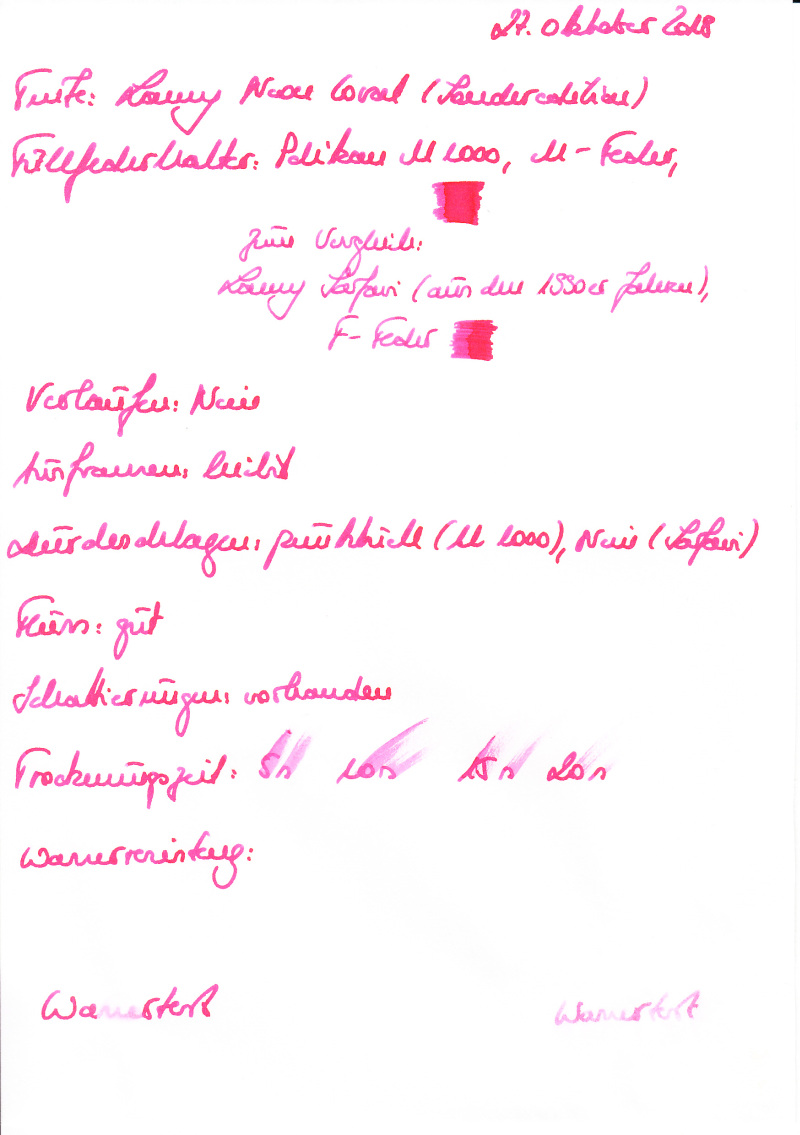 27. Oktober 2018
Tinte: Lamy Neon Coral (Sonderedition)
Füllfederhalter: Pelikan M 1000, M-Feder,
zum Vergleich:
Lamy Safari (aus den 1990er Jahren),
F-Feder
Verlaufen: Nein
Ausfransen: leicht
Durchschlagen: pünktlich (M 1000), Nein (Safari)
Fluss: gut
Schattierungen: vorhanden
Trocknungszeit: 5s 10s 15s 20s
Wasserresistenz:
Wassertest Wassertest